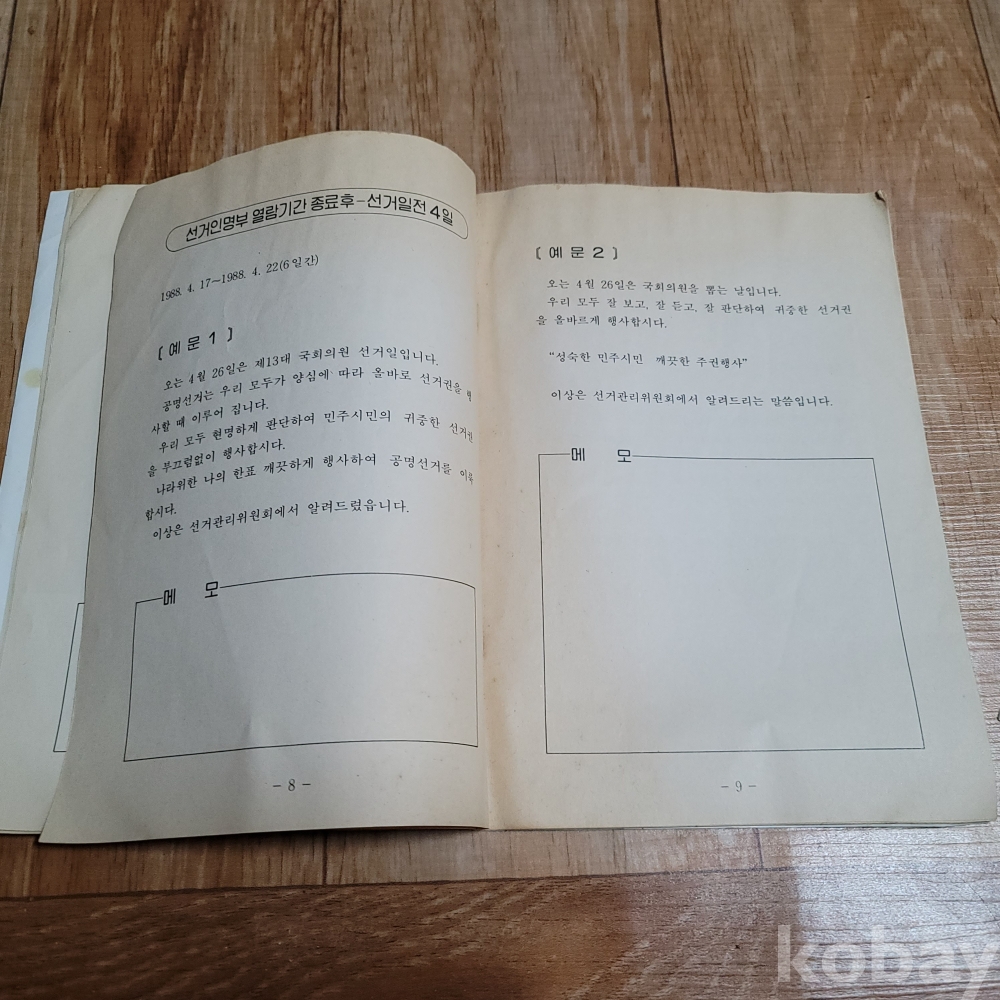 선거인명부 열람기간 종료후-선거일전 4일
1988. 4. 17~1988. 4. 22(6일간)
[예문1]
오는 4월 26일은 제13대 국회의원 선거일입니다.
공명선거는 우리 모두가 양심에 따라 올바로 선거권을 행
사할 때 이루어 집니다.
우리 모두 현명하게 판단하여 민주시민의 귀중한 선거권
을 부끄럼없이 행사합시다.
나라위한 나의 한표 깨끗하게 행사하여 공명선거를 이룩
합시다.
이상은 선거관리위원회에서 알려드렸읍니다.
메 모
- 8 -
[예문2]
오는 4월 26일은 국회의원을 뽑는 날입니다.
우리 모두 잘 보고, 잘 듣고, 잘 판단하여 귀중한 선거권
을 올바르게 행사합시다.
"성숙한 민주시민 깨끗한 주권행사"
이상은 선거관리위원회에서 알려드리는 말씀입니다.
메 모
- 9 -
kobay